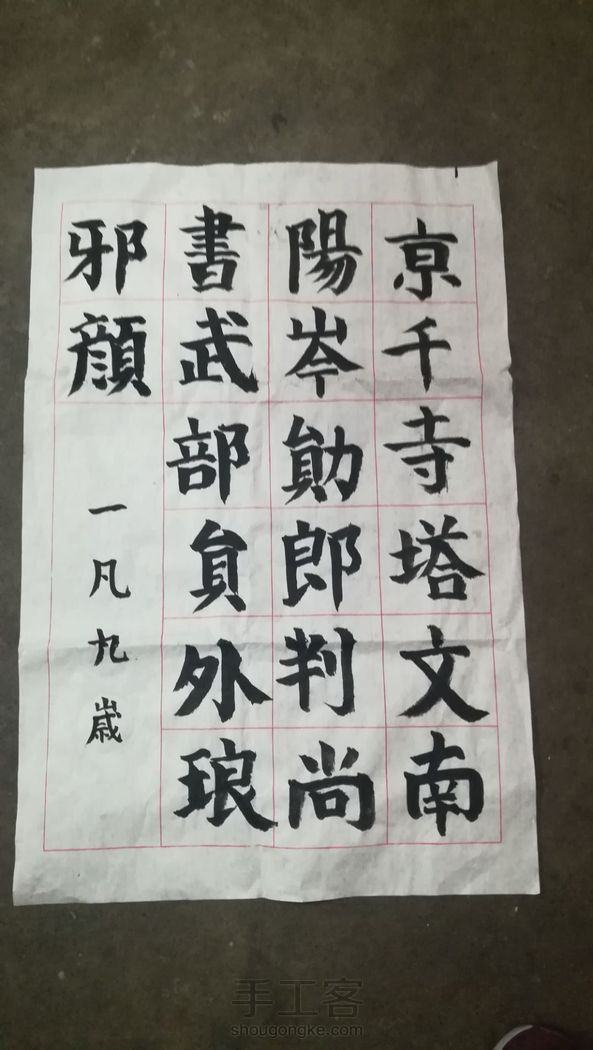 京千寺塔文南
陽岑勛郎判尚
書武部貟外琅
邪顔
一凡九歳
手工客
shougongke.com